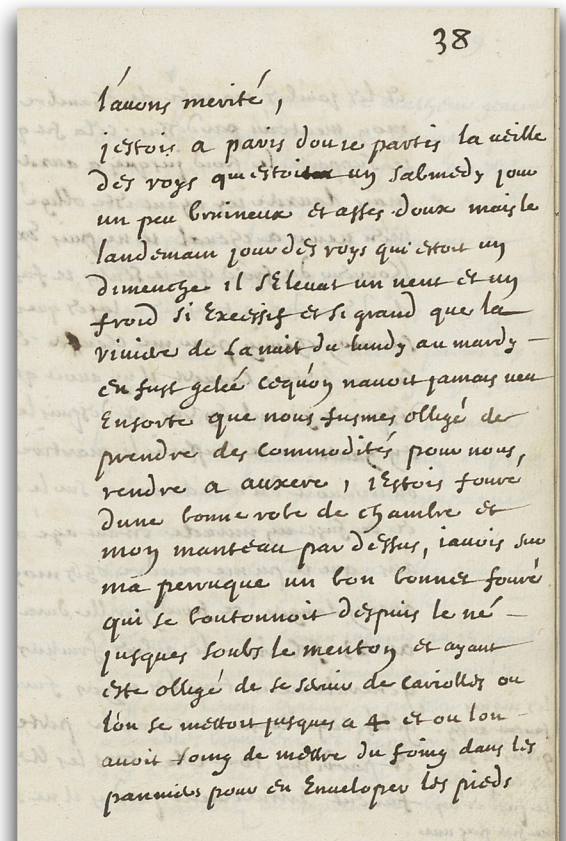 38
l'avons merité,
jestois a paris dou je partis la veille
des roys qui estoit un Sabmedy jour
un peu bruineux et asses doux mais le
landemain jour des roys qui estoit un
dimenche il s'Elevat un vent et un
froid si Excessif et si grand que la
riviere de La nuit du lundy au mardy
en fust gelée cequ'on navoit jamais veu
Ensorte que nous fusmes obligé de
prendre des Commodités pour nous
rendre a auxere, jEstois fouré
dune bonne robe de chambre et
mon manteau par dessus, javois sur
ma perruque un bon bonnet fouré
qui se boutonnoit despuis le né
jusques soubs le menton et ayant
este obligé de se servir de carioles ou
lon se mettoit jusques a 4 et ou lon
avoit soing de mettre du foing dans les
panniers pour en Enveloper les pieds